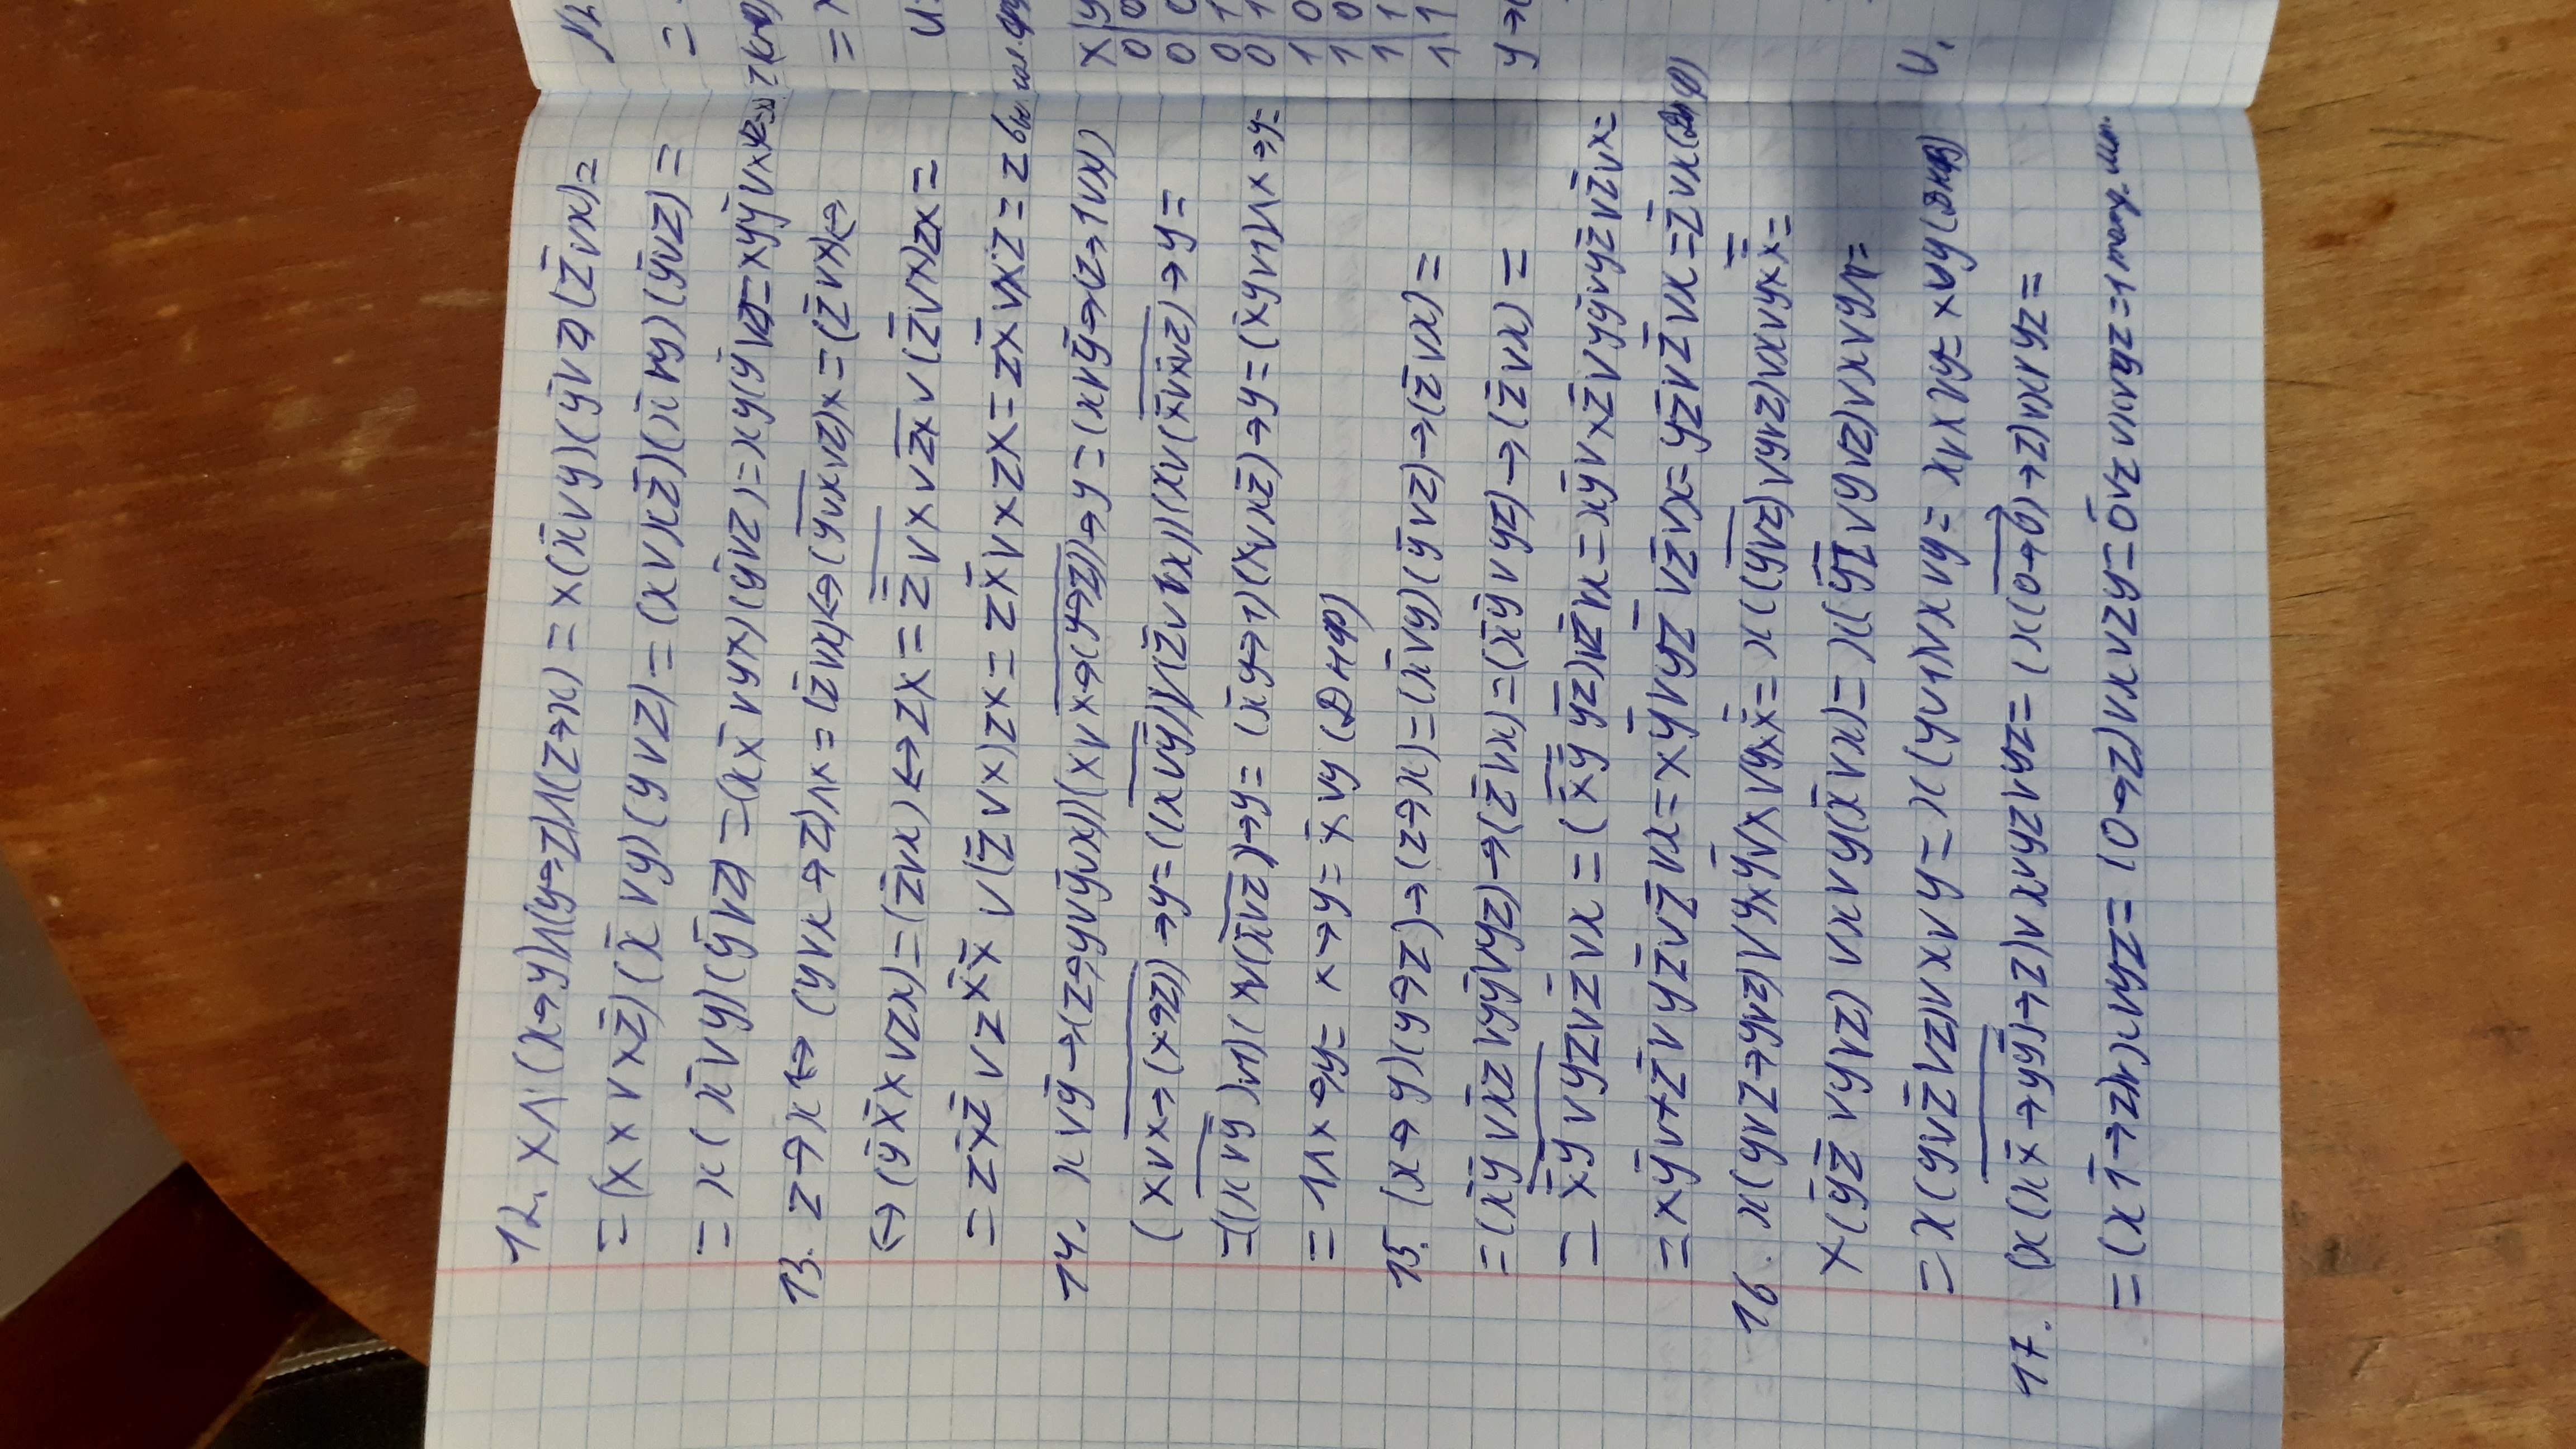 12. x∧(x→y)∧(y→z)∧(z→x) = x(x̄∨y)(ȳ∨z)(z̄∨x)=
= (xx∨xz̄)(x̄∨y)(y∨z)=(x∨xz̄)(x̄∨y)(ȳ∨z)=
= x(x̄∨y)(ȳ∨z)=(xx̄∨yx)(ȳ∨z)=xy(ȳ∨z)=xyȳ∨xyz=
13. z→x↔(y∨x→z)∧x=(z̄∨x)↔(\overline{y∨x}∨z)x=(z̄∨x)↔
↔(ȳx̄x∨zx)=(z̄∨x)↔zx=\overline{z̄∨x}∨\overline{zx}∨(z̄∨x)zx=
= zx̄z̄∨zx̄x̄∨(z̄∨x)zx=zx̄∨xzx=zx̄∨xz=z
14. x∨ȳ→(z→y∨ȳ∨x))(x∨\overline{x→(y→z)})→y=(x∨ȳ→(z→1∨x))
(x∨\overline{x→(x→z)})→y=((\overline{x∨ȳ})∨(z̄∨1∨x))(x∨(\overline{x̄∨x̄∨z})→y=
=((\overline{x∨ȳ})∨1)(x∨(\overline{x̄∨z}))→y=(x̄y→1)(x∨xz̄)→y=(x̄y∨1)∧x→y=
= 1∧x→y= x→y=x̄∨y (ДНФ)
15. (x→y)(y→z)→(z→x)=(x̄∨y)(ȳ∨z)→(z̄∨x)=
=(x̄ȳ∨x̄z∨yȳ∨yz)→(z̄∨x)=(x̄ȳ∨yz)→(z̄∨x)=
= \overline{x̄ȳ∨yz}∨z̄∨x=(\overline{x̄ȳ} \overline{yz})∨z̄∨x=xȳ∨xz̄∨yȳ∨yz̄∨z̄∨x=
=xȳ∨xz̄∨yz̄∨z̄∨x=xȳ∨yz̄∨z̄∨x=yz̄∨z̄∨x=z̄∨x(ДНФ)
16. x(y∨z→y∨z)∨yxȳ∨x∨yxx̄= x((\overline{y∨z})∨y∨z)∨x∨yxx̄=
x(ȳz̄∨y∨z)∨x∨y(x̄∨x)=x(ȳz̄∨y∨z)∨x∨y∧1=
= x(y∨z̄∨z)∨x∨y=x(y∨1)∨x∨y= x∨x∨y=x∨y(ДНФ)
17. (x(\overline{xx̄→yȳ})→z)∨x∨yz∨yz=(x(\overline{0→0})→z)∨x∨yz=
=(x1̄→z)∨x∨yz=(0→z)∨x∨zy=0̄∨z∨x∨yz=1
x y
0 0
0 0
0 1
0 1
1 0
1 0
1 1
1 1
y→(